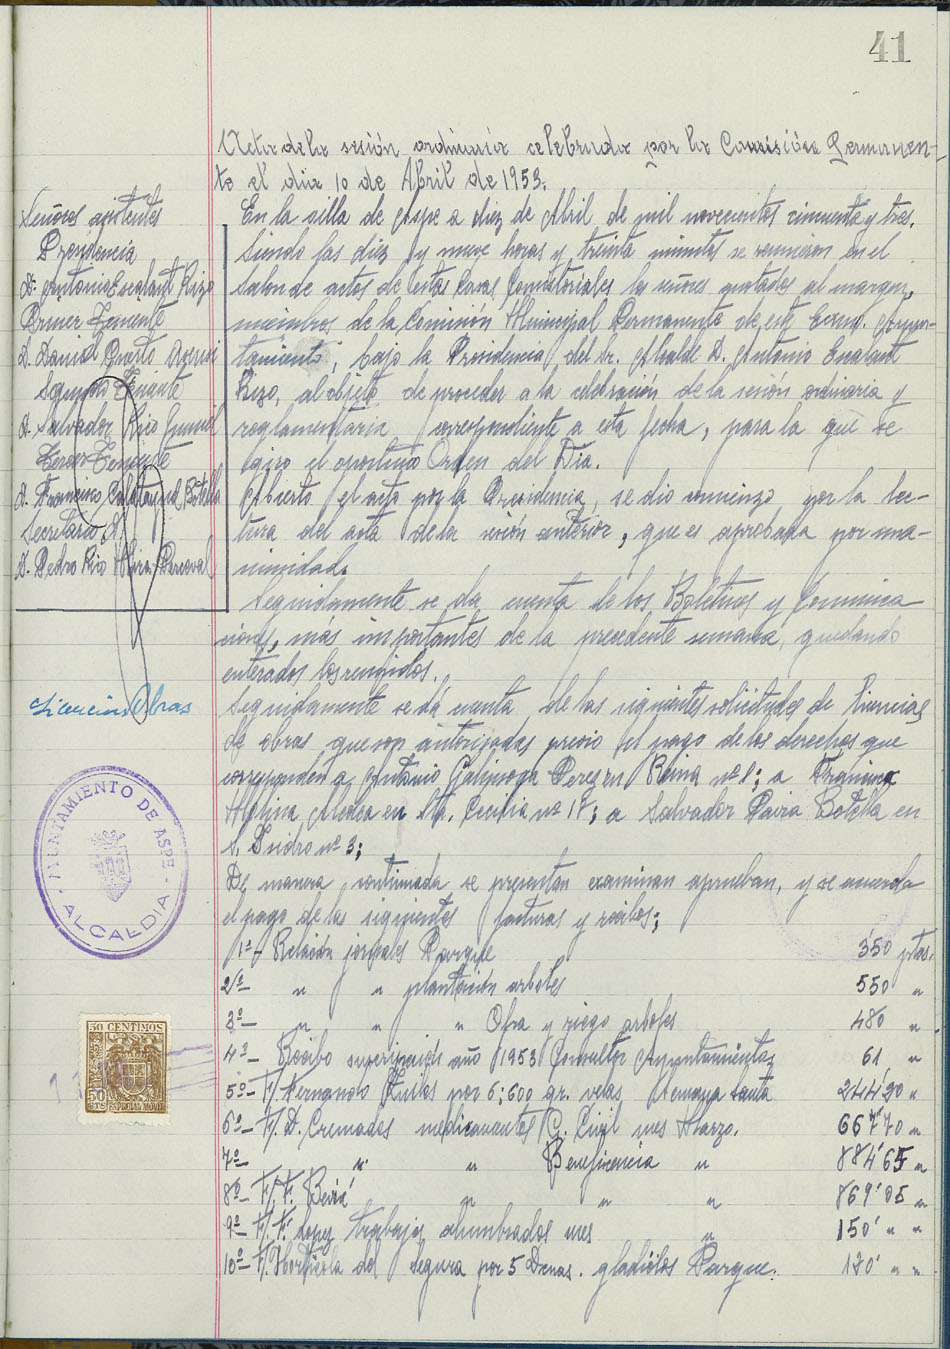 41
Acta de la sesión ordinaria celebrada por la Comisión Permanen-
te el día 10 de Abril de 1953.
Señores asistentes
Presidencia
D. Antonio Escalant Rizo
Primer Teniente
D. David
Segundo Teniente
D. Salvador Rico
Tercer Teniente
D. Francisco Calatayud Botella
Secretario
D. Pedro Rico
En la villa de Aspe a diez de Abril de mil novecientos cincuenta y tres.
Siendo las diez y nueve horas y treinta minutos se reunieron en el
Salon de actos de estas Casas Consistoriales los señores anotados al margen,
miembros de la Comisión Municipal Permanente de este Excmo. Ayun-
tamiento, bajo la Presidencia del Sr. Alcalde D. Antonio Escalant
Rizo, al objeto de proceder a la celebración de la sesión ordinaria y
reglamentaria correspondiente a esta fecha, para la que se
giro el oportuno Orden del Dia.
Abierto el acto por la Presidencia, se dio comienzo por la lec-
tura del acta de la sesión anterior, que es aprobada por una-
nimidad.
Seguidamente se da cuenta de los Boletines y Comunica
ciones, más importantes de la precedente semana, quedando
enterados los reunidos.
Licencias Obras
Seguidamente se dá cuenta de las siguientes solicitudes de licencias
de obras que son autorizadas previo el pago de los derechos que
corresponden a Antonio Galinsoga Peres en Reina nº 8; a
Molina en Sta. Cecilia nº 17; a Salvador Pavia Botella en
S. Isidro nº 3;
De manera continuada se presentan examinan aprueban, y se acuerda
el pago de las siguientes facturas y recibos;
AYUNTAMIENTO DE ASPE
ALCALDIA
1º- Relación jornales Parque 350 ptas.
2º- " " plantación arboles 550 "
3º- " " " Obra y riego arboles 480 "
4º- Recibo suscripción año 1953 Consultor Ayuntamientos 61 "
5º- F/ Hernando por 6:600 gr. velas Semana Santa 244'20 "
6º- F/. D. Cremades medicamentos G. Civil mes Marzo. 667'70 "
7º- " " Beneficencia " 884'65 "
8º- F/. F. Beviá " " " 869'05 "
9º- F/. F. Lopez trabajos alumbrados mes " 150' " "
10º- F/. Horticola del Segura por 5 Dcnas. gladiolos Parque. 120' " "
50 CENTIMOS
50 CTS
ESPECIAL MOVIL